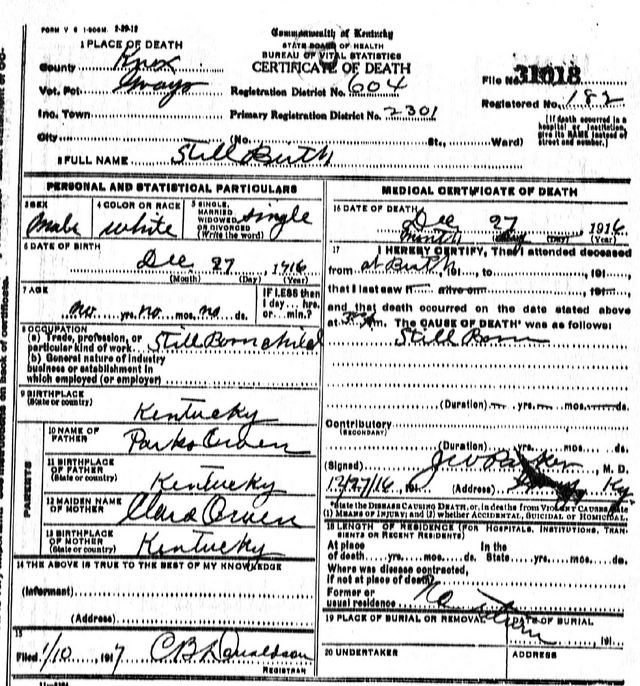 FORM V S 1-500M. 2-29-12
Commonwealth of Kentucky
STATE BOARD OF HEALTH
BUREAU OF VITAL STATISTICS
CERTIFICATE OF DEATH
1 PLACE OF DEATH
County Knox
Vot. Pct Grays
Registration District No. 604
File No. 31018
Inc. Town
Primary Registration District No. 2301
Registered No. 182
City
(No. St., Ward)
[If death occurred in a hospital or institution, give its NAME instead of street and number.]
2 FULL NAME Still Birth
PERSONAL AND STATISTICAL PARTICULARS
3 SEX Male
4 COLOR OR RACE white
5 SINGLE, MARRIED WIDOWED OR DIVORCED (Write the word) single
6 DATE OF BIRTH
Dec 27, 1916
(Month) (Day) (Year)
7 AGE
no yrs. no mos. no ds.
IF LESS than 1 day... hrs. or... min.?
8 OCCUPATION
(a) Trade, profession, or particular kind of work Still Born child
(b) General nature of industry business or establishment in which employed (or employer)
9 BIRTHPLACE (State or country) Kentucky
PARENTS
10 NAME OF FATHER Parks Owen
11 BIRTHPLACE OF FATHER (State or country) Kentucky
12 MAIDEN NAME OF MOTHER Clara Owen
13 BIRTHPLACE OF MOTHER (State or country) Kentucky
14 THE ABOVE IS TRUE TO THE BEST OF MY KNOWLEDGE
(Informant)
(Address)
15
Filed 1/10, 1917 C B Donaldson
REGISTRAR
MEDICAL CERTIFICATE OF DEATH
16 DATE OF DEATH Dec 27, 1916
(Month) (Day) (Year)
17 I HEREBY CERTIFY, That I attended deceased
from at Birth, 191..., to ..., 191...,
that I last saw h... alive on ..., 191...,
and that death occurred on the date stated above
at 3 Am. The CAUSE OF DEATH* was as follows:
Still Born
(Duration) yrs. mos. ds.
Contributory
(SECONDARY)
(Duration) yrs. mos. ds.
(Signed) J W Parker, M. D.
12/27/16, 191 (Address) Ky.
*State the DISEASE CAUSING DEATH, or, in deaths from VIOLENT CAUSES, state
(1) MEANS OF INJURY; and (2) whether ACCIDENTAL, SUICIDAL or HOMICIDAL.
18 LENGTH OF RESIDENCE (FOR HOSPITALS, INSTITUTIONS, TRANSIENTS OR RECENT RESIDENTS)
At place of death... yrs.... mos.... ds. In the State... yrs.... mos.... ds.
Where was disease contracted, if not at place of death?
Former or usual residence
19 PLACE OF BURIAL OR REMOVAL
DATE OF BURIAL
191
20 UNDERTAKER
ADDRESS